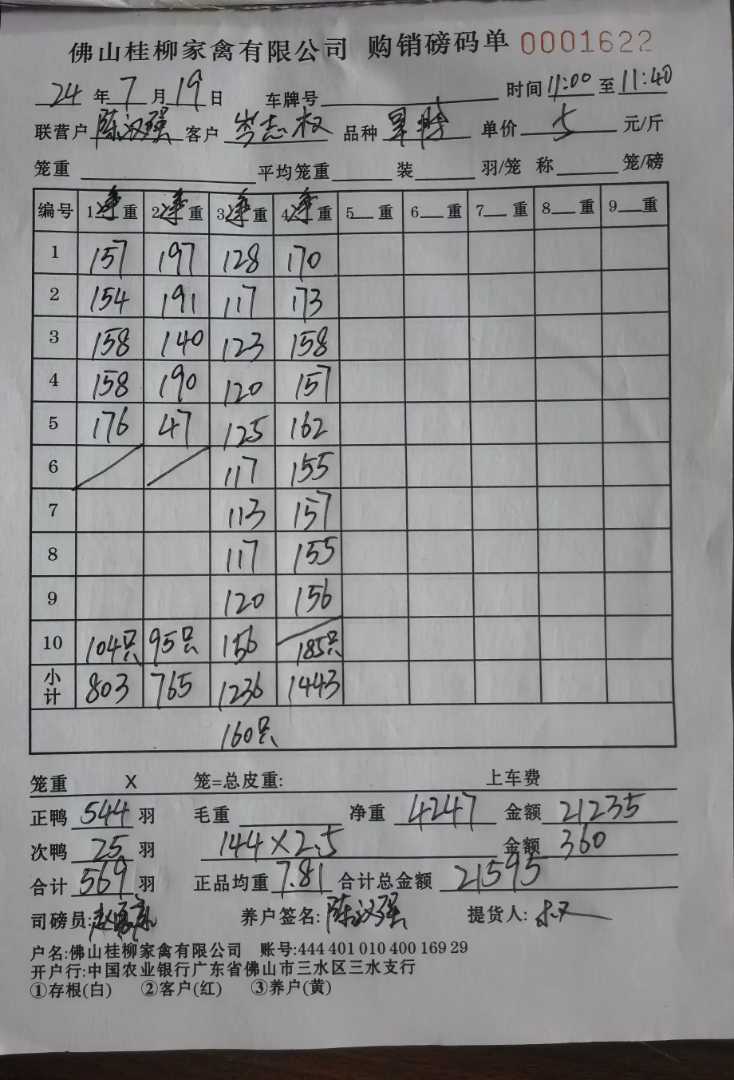 佛山桂柳家禽有限公司 购销磅码单 0001622
24 年 7 月 19 日 车牌号 时间 11:00 至 11:40
联营户 陈汉强 客户 岑志权 品种 单价 5 元/斤
笼重 平均笼重 装 羽/笼 称 笼/磅
编号 1 净 重 2 净 重 3 净 重 4 净 重 5 重 6 重 7 重 8 重 9 重
1 157 197 128 170
2 154 191 117 173
3 158 140 123 158
4 158 190 120 157
5 176 47 125 162
6 117 155
7 113 157
8 117 155
9 120 156
10 104只 95只 156 185只
小计 803 765 1236 1443
160只
笼重 X 笼=总皮重: 上车费
正鸭 544 羽 毛重 净重 4247 金额 21235
次鸭 25 羽 144×2.5 金额 360
合计 569 羽 正品均重 7.81 合计总金额 21595
司磅员: 养户签名: 陈汉强 提货人:
户名:佛山桂柳家禽有限公司 账号:444 401 010 400 169 29
开户行:中国农业银行广东省佛山市三水区三水支行
①存根(白) ②客户(红) ③养户(黄)